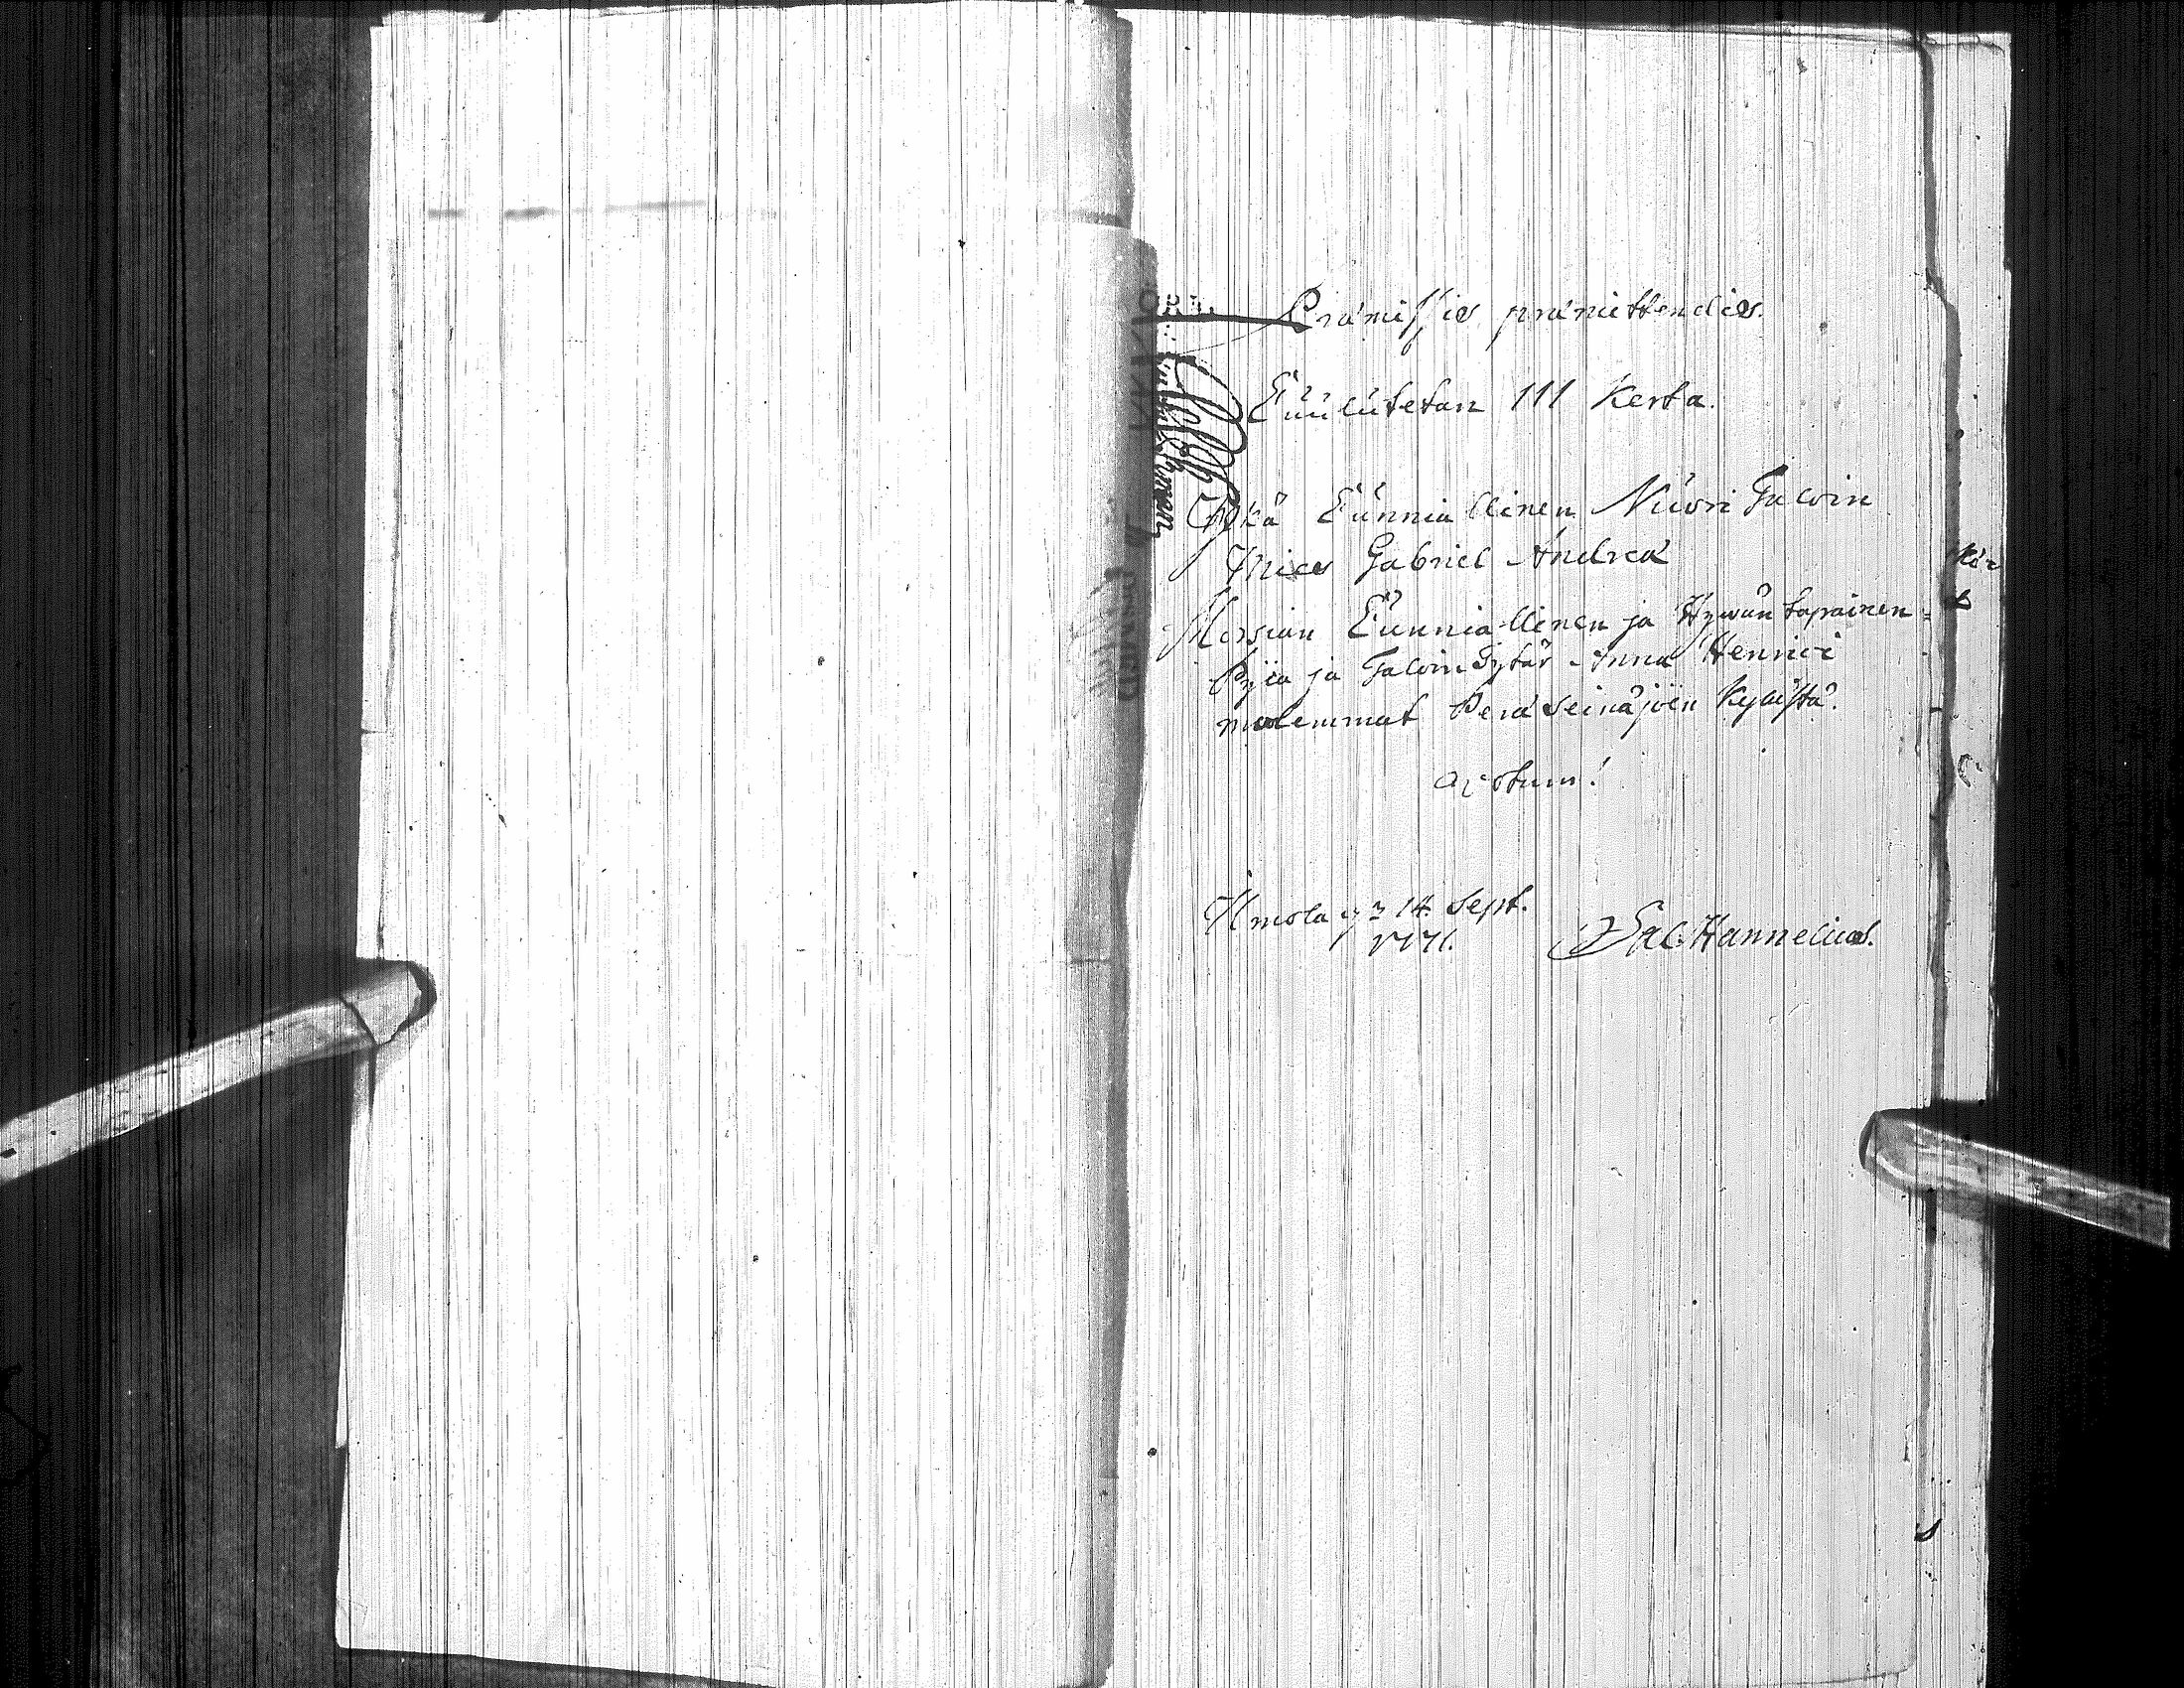 Præmissis præmittendis.
Cuulutetan III Kerta.
Ylkä Cunniallinen Nuori Taloin
Mies Gabriel Andreæ
Morsian Cunniallinen ja Hywän tapainen
Pijca ja Taloin Tytär Anna Henrici
molemmat Peräseinäjoen Kyläistä.
Votum!
Ilmola 14. Sept.
1771.
Sal: Hannelius.